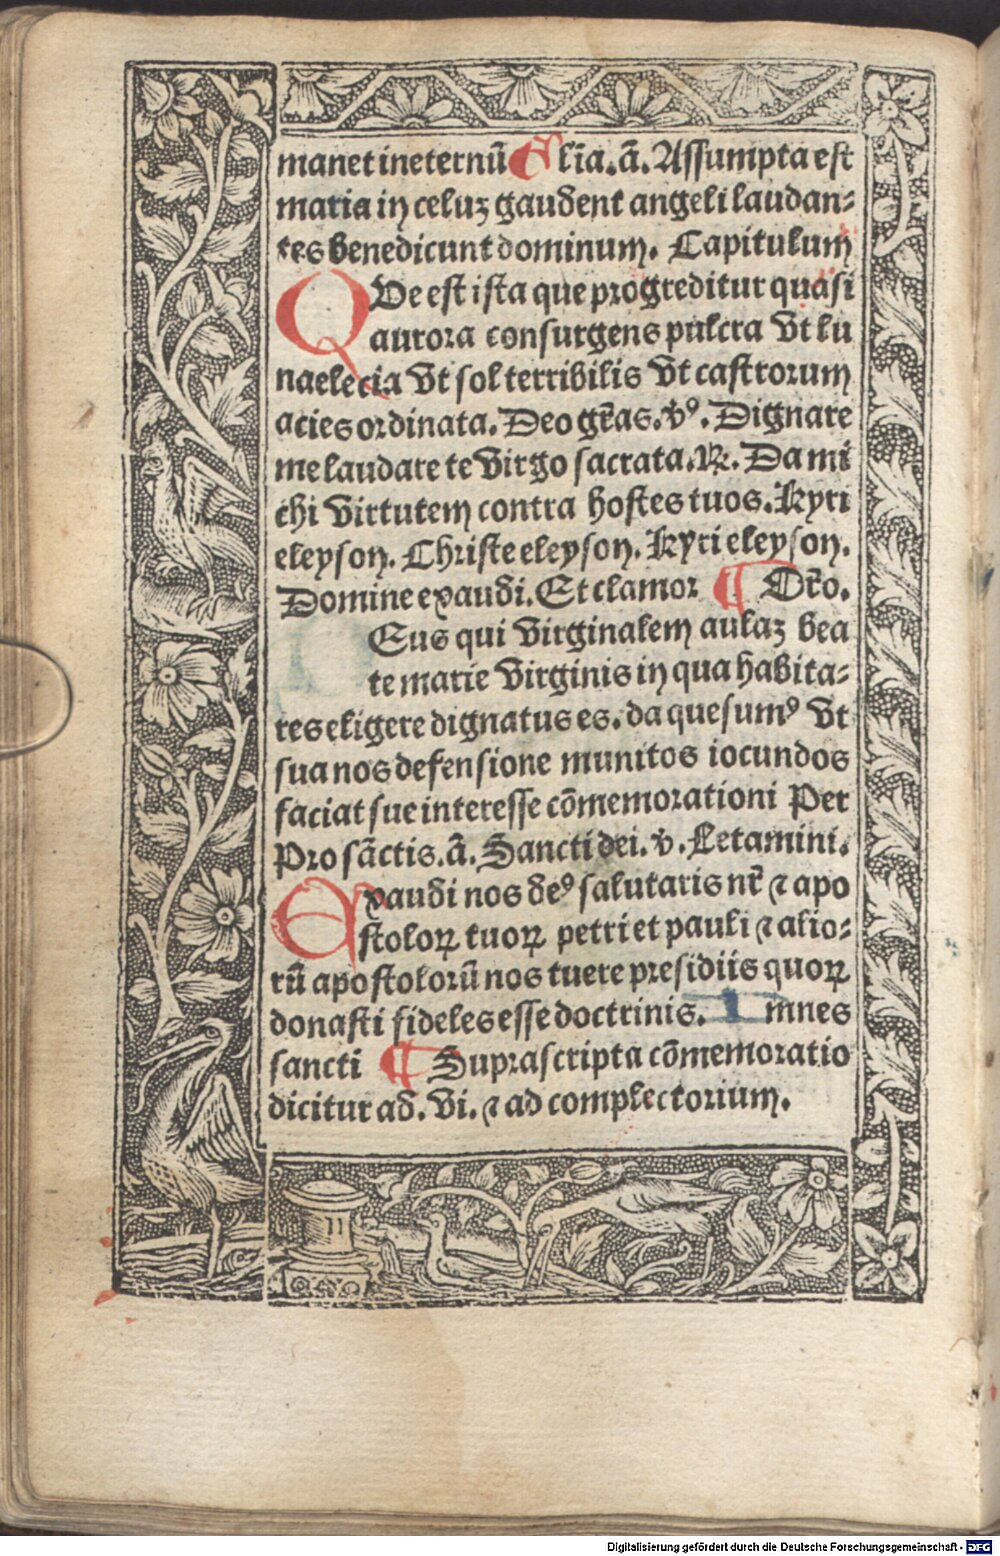 manet in eternū Gl̄ia. ā. Assumpta est
maria in celuʒ gaudent angeli laudan-
tes benedicunt dominum. Capitulum
QUe est ista que progreditur quasi
aurora consurgens pulcra vt lu
na electa vt sol terribilis vt castrorum
acies ordinata. Deo gr̄as. vꝰ. Dignare
me laudare te virgo sacrata. ℞. Da mi
chi virtutem contra hostes tuos. Kyri
eleyson. Christe eleyson. Kyri eleyson.
Domine exaudi. Et clamor ¶ Or̄o.
DEus qui virginalem aulaʒ bea
te marie virginis in qua habita-
res eligere dignatus es. da quesumꝰ vt
sua nos defensione munitos iocundos
faciat sue interesse cōmemorationi Per
Pro sāctis. ā. Sancti dei. v. Letamini.
Exaudi nos deꝰ salutaris nr̄ ⁊ apo
stoloꝝ tuoꝝ petri et pauli ⁊ alio-
rū apostolorū nos tuere presidiis quoꝝ
donasti fideles esse doctrinis. mnes
sancti ¶ Suprascripta cōmemoratio
dicitur ad. vi. ⁊ ad complectorium.
Digitalisierung gefördert durch die Deutsche Forschungsgemeinschaft - DFG